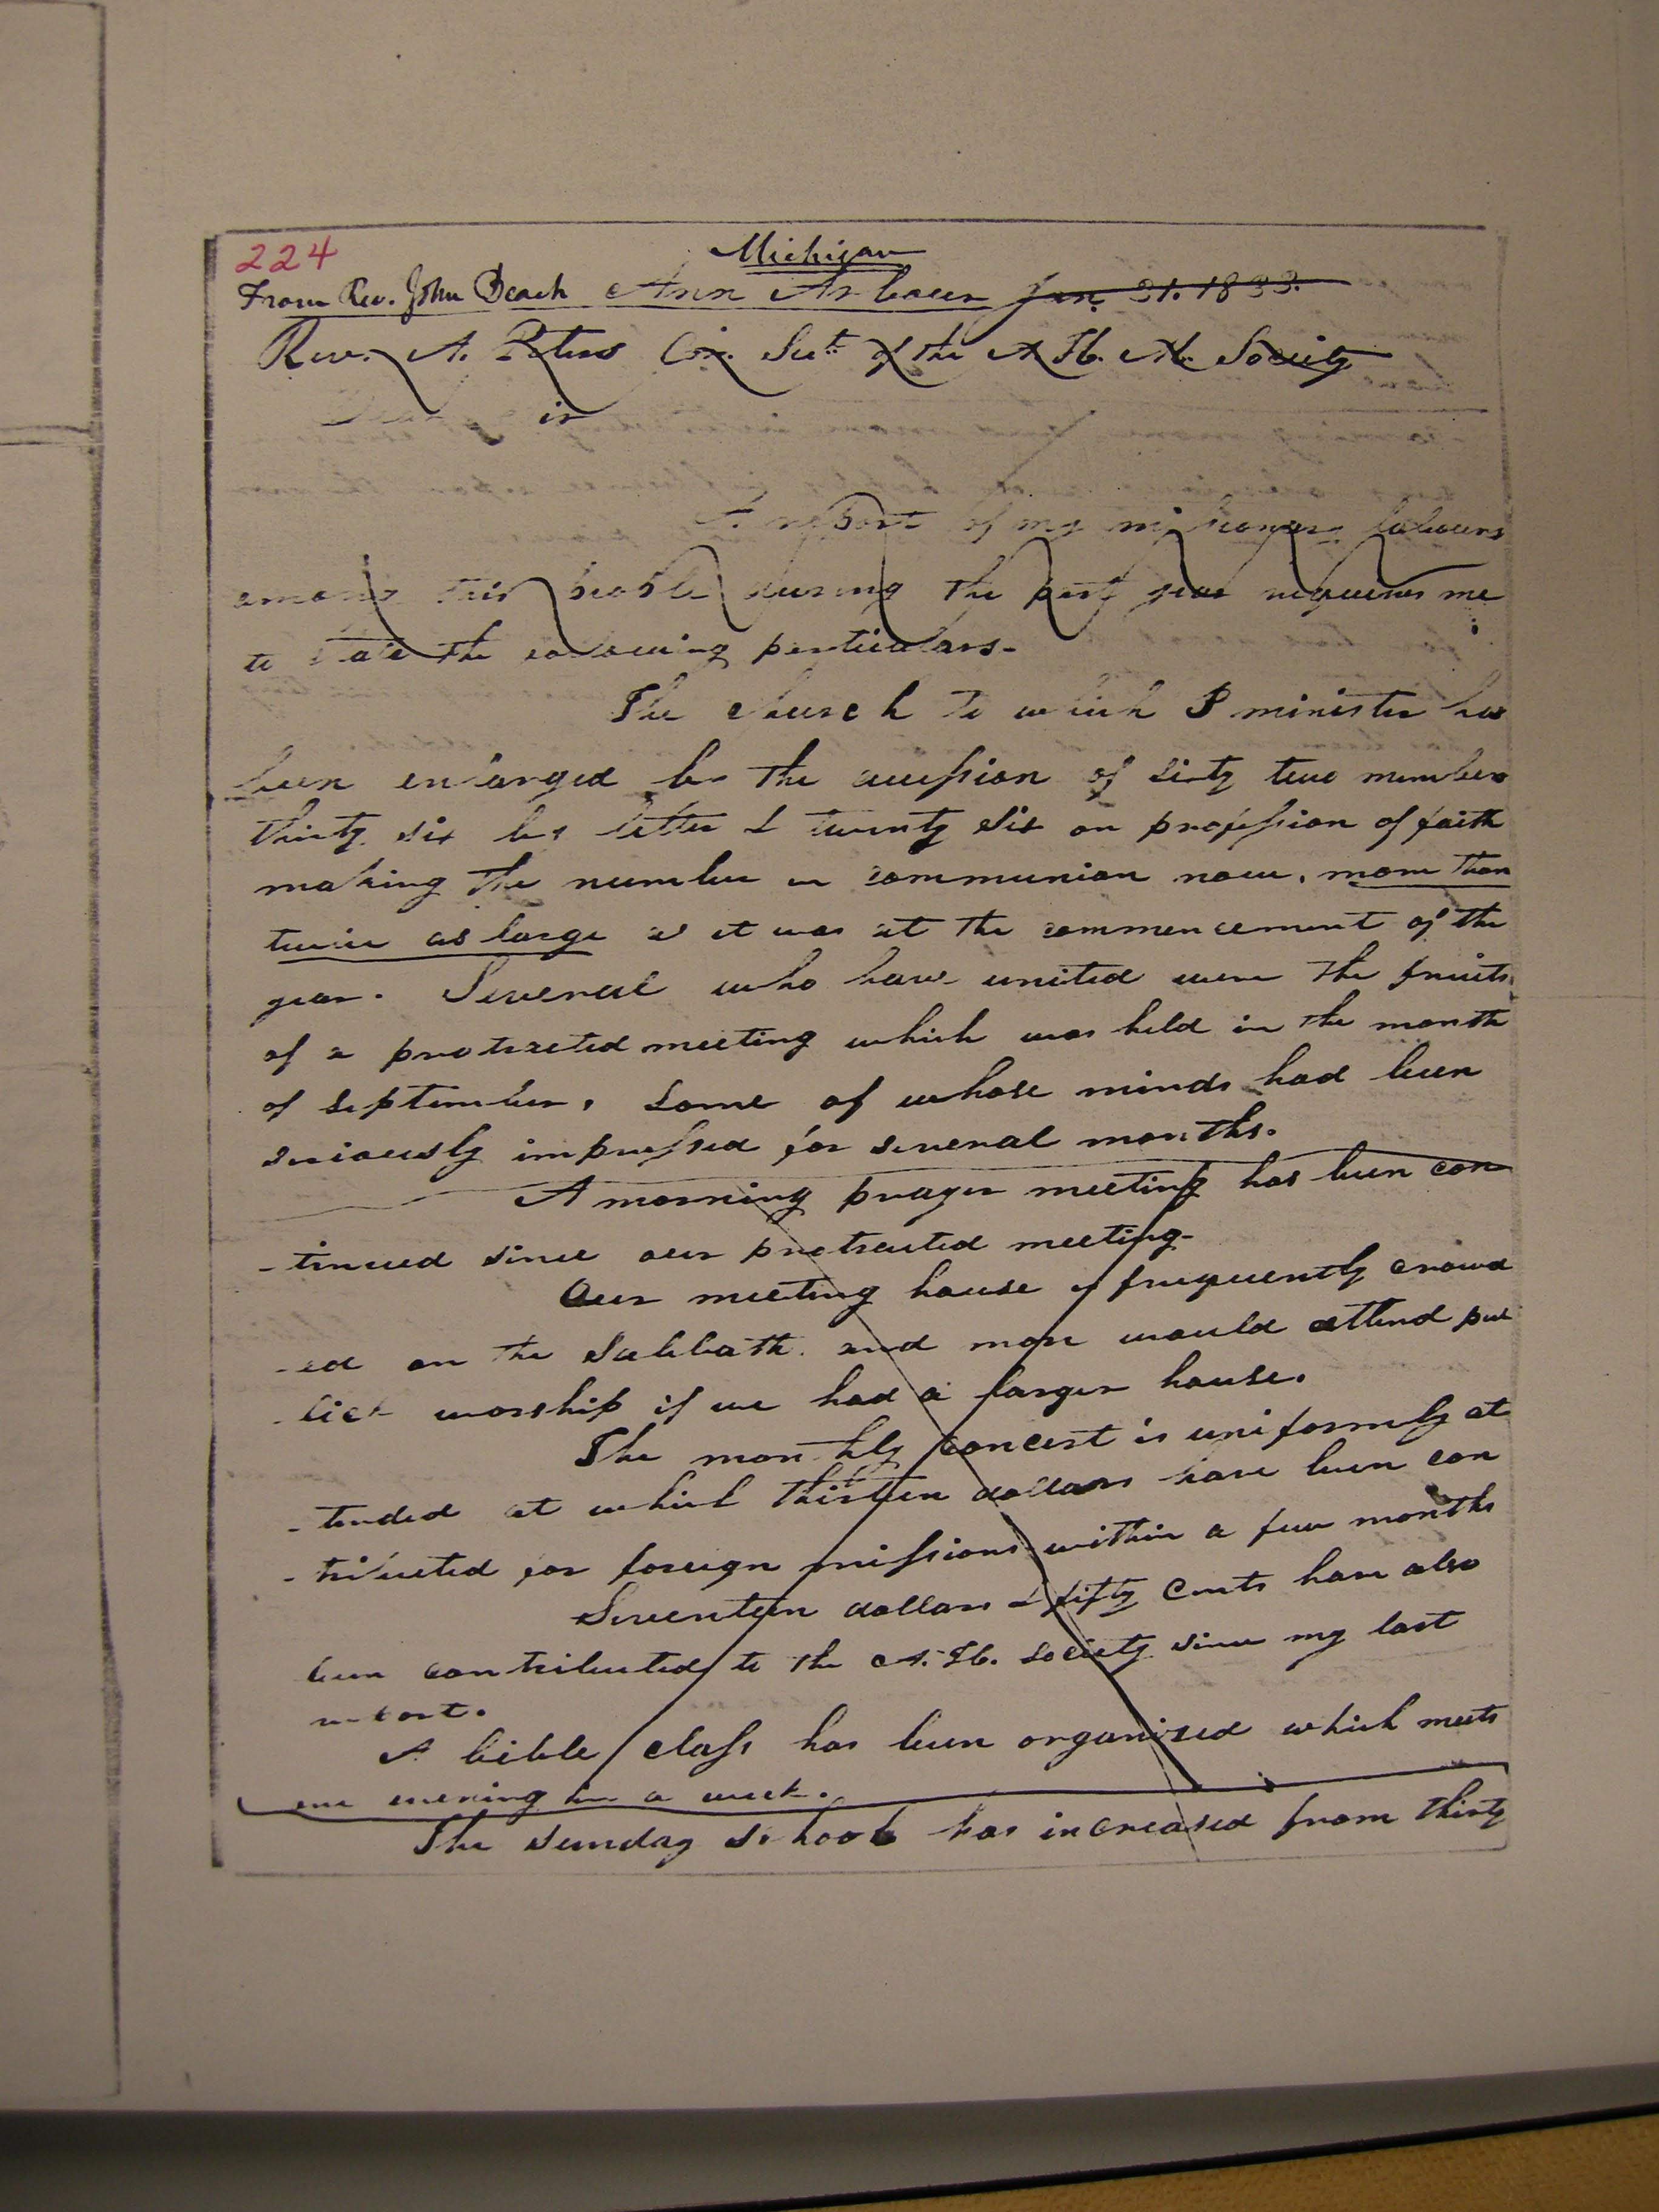 224
Michigan
From Rev. John Beach Ann Arbour Jan. 31. 1833.
Rev. A. Peters Cor. Sect. of the A. H. M. Society
Dear Sir
A report of my missionary labours
among this people during the past year requires me
to state the following particulars-
The church to which I minister has
been enlarged by the accession of sixty two members
thirty six by letter & twenty six on profession of faith
making the number in communion now, more than
twice as large as it was at the commencement of the
year. Several who have united were the fruits
of a protracted meeting which was held in the month
of september, some of whose minds had been
seriously impressed for several months.
A morning prayer meeting has been con
-tinued since our protracted meeting-
Our meeting house is frequently crowd
-ed on the Sabbath and more would attend pub
-lick worship if we had a larger house.
The monthly concert is uniformly at
-tended at which thirteen dollars have been con
-tributed for foreign missions within a few months
Seventeen dollars & fifty Cents have also
been contributed to the A. H. Society since my last
report.
A bible class has been organised which meets
one evening in a week.
The sunday school has increased from thirty